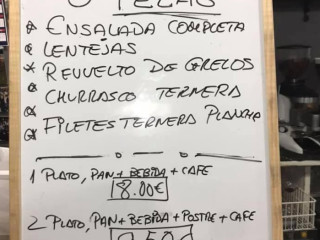 ENSALADA COMPLETA
LENTEJAS
REVUELTO DE GRELOS
CHURRASCO TERNERA
FILETES TERNERA PLANCHA
1 PLATO, PAN + BEBIDA + CAFE
8.00€
2 PLATO, PAN + BEBIDA + POSTRE + CAFE